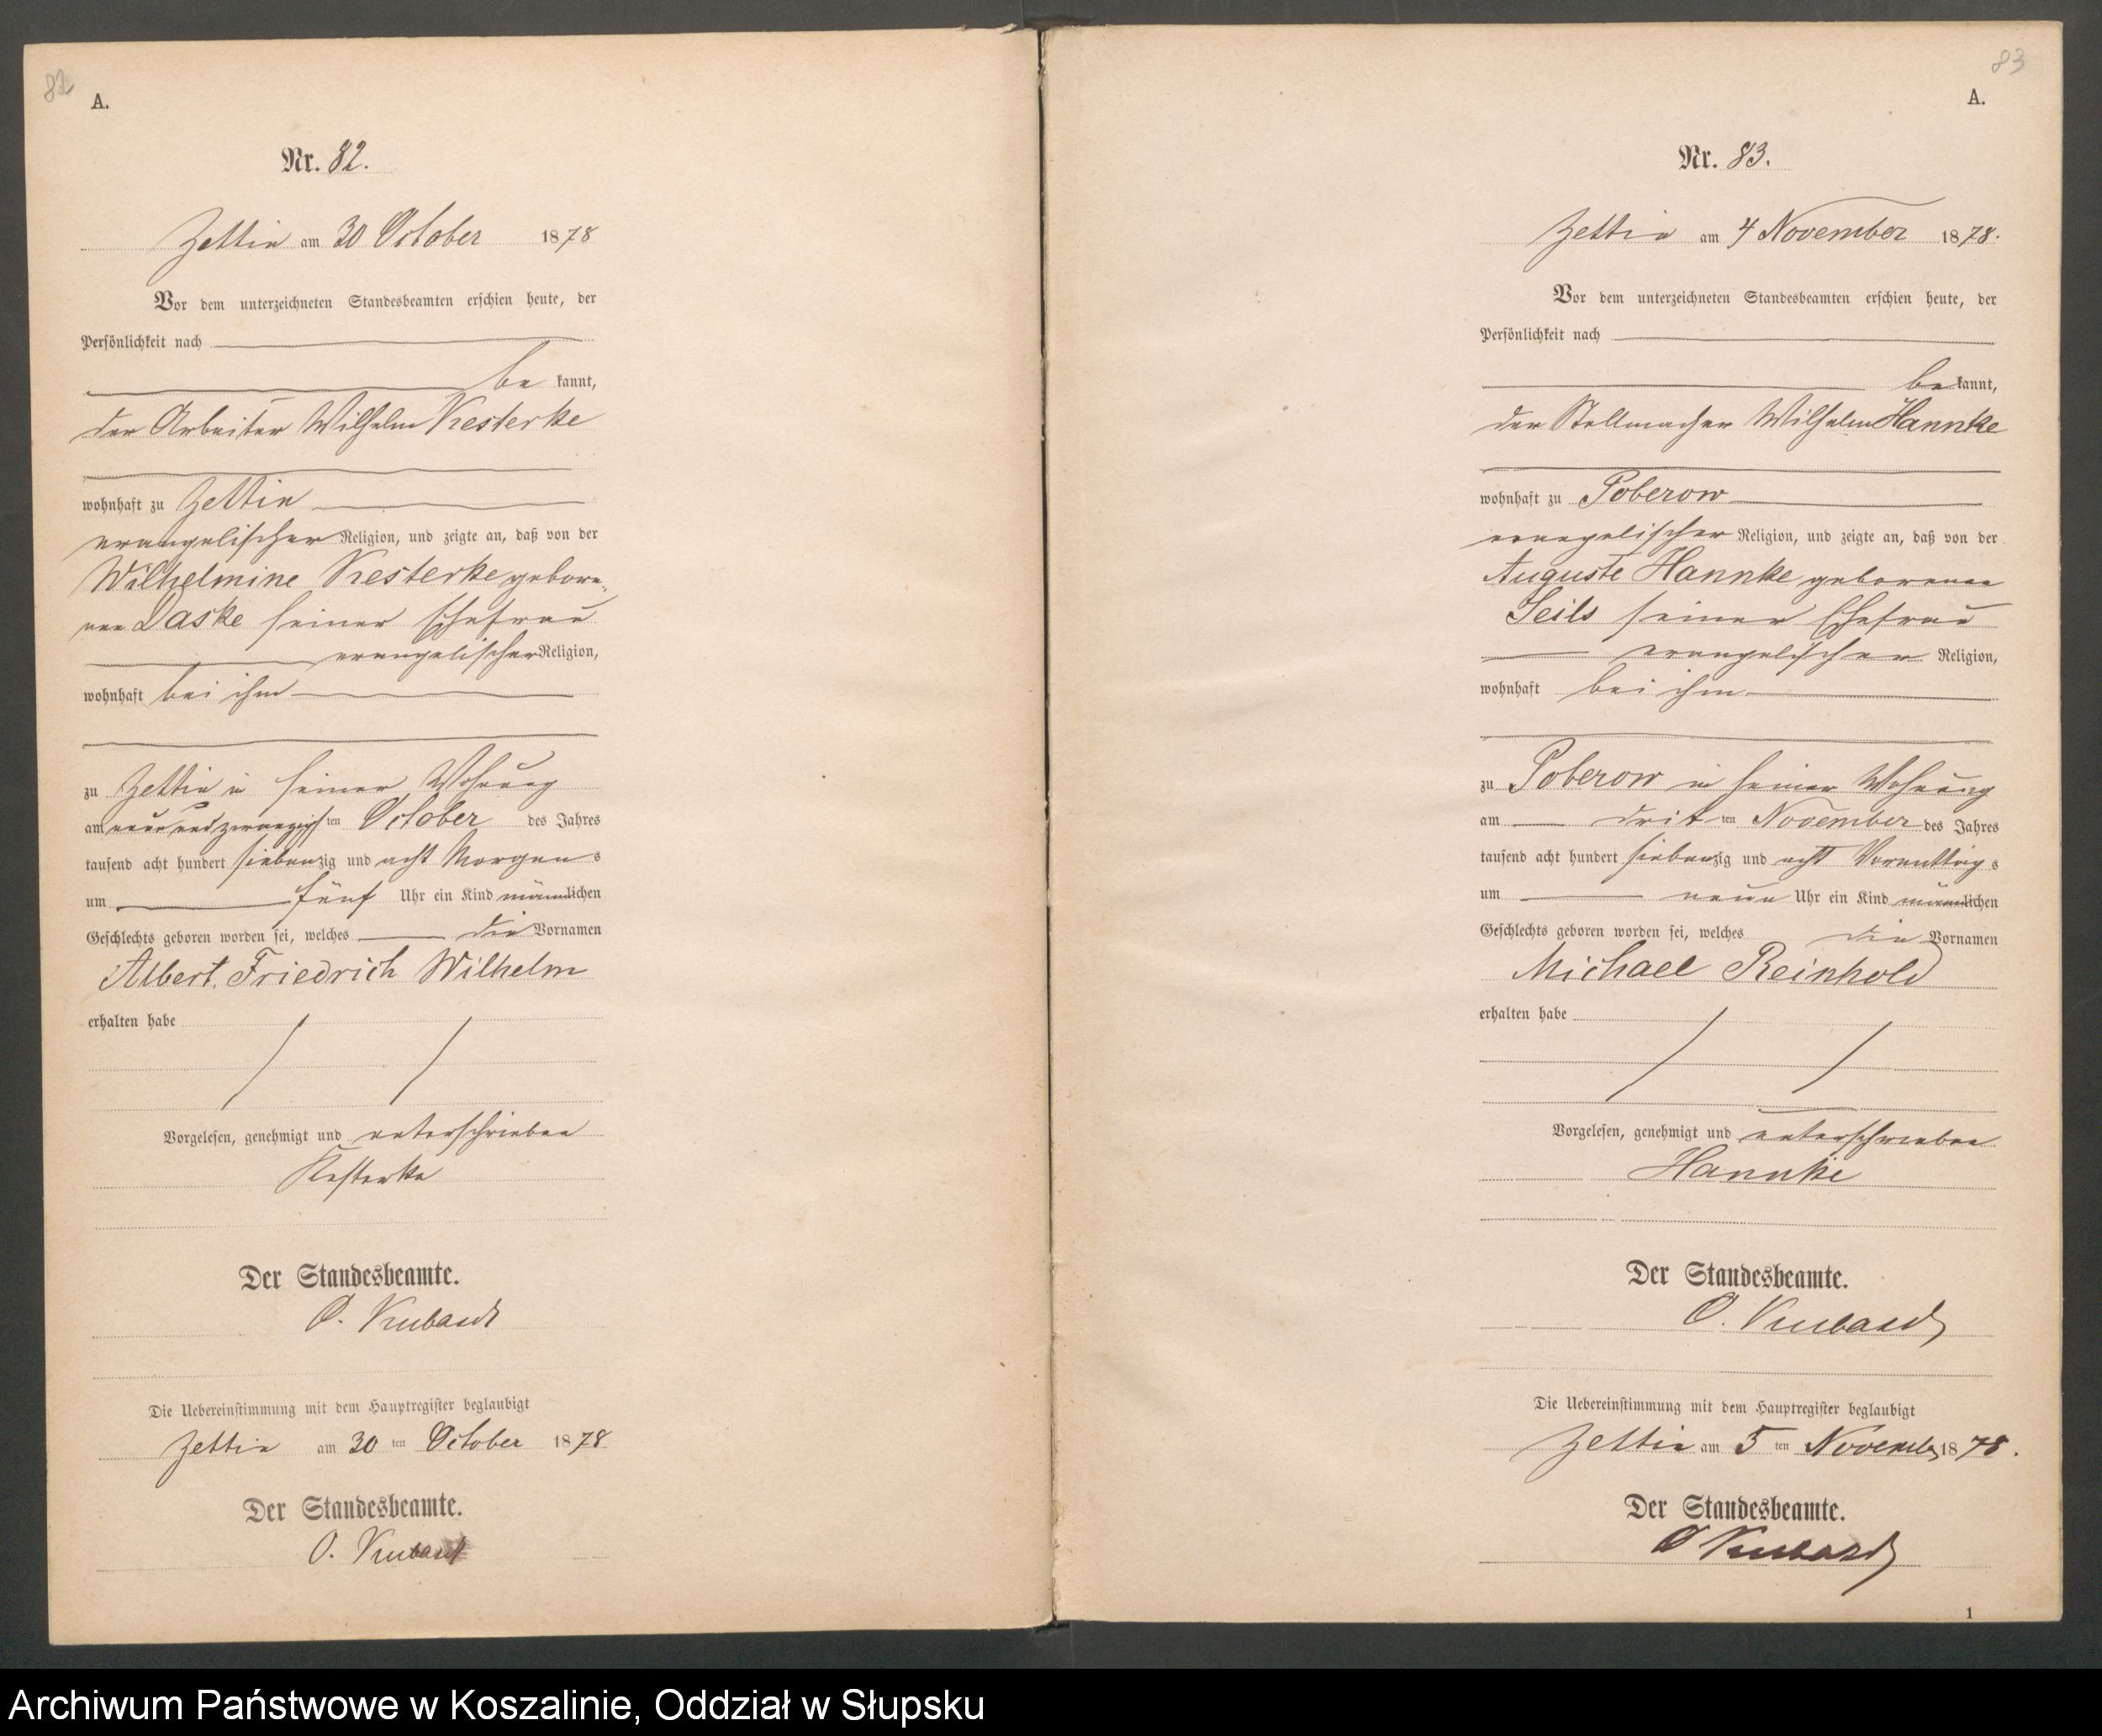 82
A.
Nr. 82.
Zettin am 30 October 1878
Vor dem unterzeichneten Standesbeamten erschien heute, der
Persönlichkeit nach
be kannt,
der Arbeiter Wilhelm Kesterke
wohnhaft zu Zettin
evangelischer Religion, und zeigte an, daß von der
Wilhelmine Kesterke gebore-
nen Laske seiner Ehefrau
evangelischer Religion,
wohnhaft bei ihm
zu Zettin in seiner Wohnung
am neun und zwanzigsten October des Jahres
tausend acht hundert siebenzig und acht Morgens
um fünf Uhr ein Kind männlichen
Geschlechts geboren worden sei, welches die Vornamen
Albert Friedrich Wilhelm
erhalten habe
Vorgelesen, genehmigt und unterschrieben
Kesterke
Der Standesbeamte.
O.
Die Uebereinstimmung mit dem Hauptregister beglaubigt
Zettin am 30 ten October 1878
Der Standesbeamte.
O.
83
A.
Nr. 83.
Zettin am 4 November 1878.
Vor dem unterzeichneten Standesbeamten erschien heute, der
Persönlichkeit nach
bekannt,
der Stellmacher Wilhelm Hannke
wohnhaft zu Poberow
evangelischer Religion, und zeigte an, daß von der
Auguste Hannke geborenen
Seils seiner Ehefrau
evangelischer Religion,
wohnhaft bei ihm
zu Poberow in seiner Wohnung
am dritten November des Jahres
tausend acht hundert siebenzig und acht Vormittags
um neun Uhr ein Kind männlichen
Geschlechts geboren worden sei, welches die Vornamen
Michael Reinhold
erhalten habe
Vorgelesen, genehmigt und unterschrieben
Hannke
Der Standesbeamte.
O.
Die Uebereinstimmung mit dem Hauptregister beglaubigt
Zettin am 5 ten November 1878.
Der Standesbeamte.
O
1
Archiwum Państwowe w Koszalinie, Oddział w Słupsku